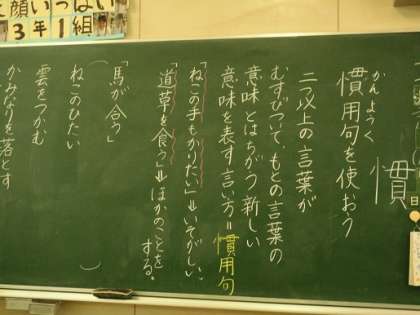 顔いっぱい
3年1組
慣
日
かんようく
慣用句を使おう
二つ以上の言葉が
むすびついて、もとの言葉の
意味とはちがう新しい
意味を表す言い方=慣用句
「ねこの手もかりたい」=いそがしい。
「道草を食う」=ほかのことを
する。
「馬が合う」
ねこのひたい
雲をつかむ
かみなりを落とす